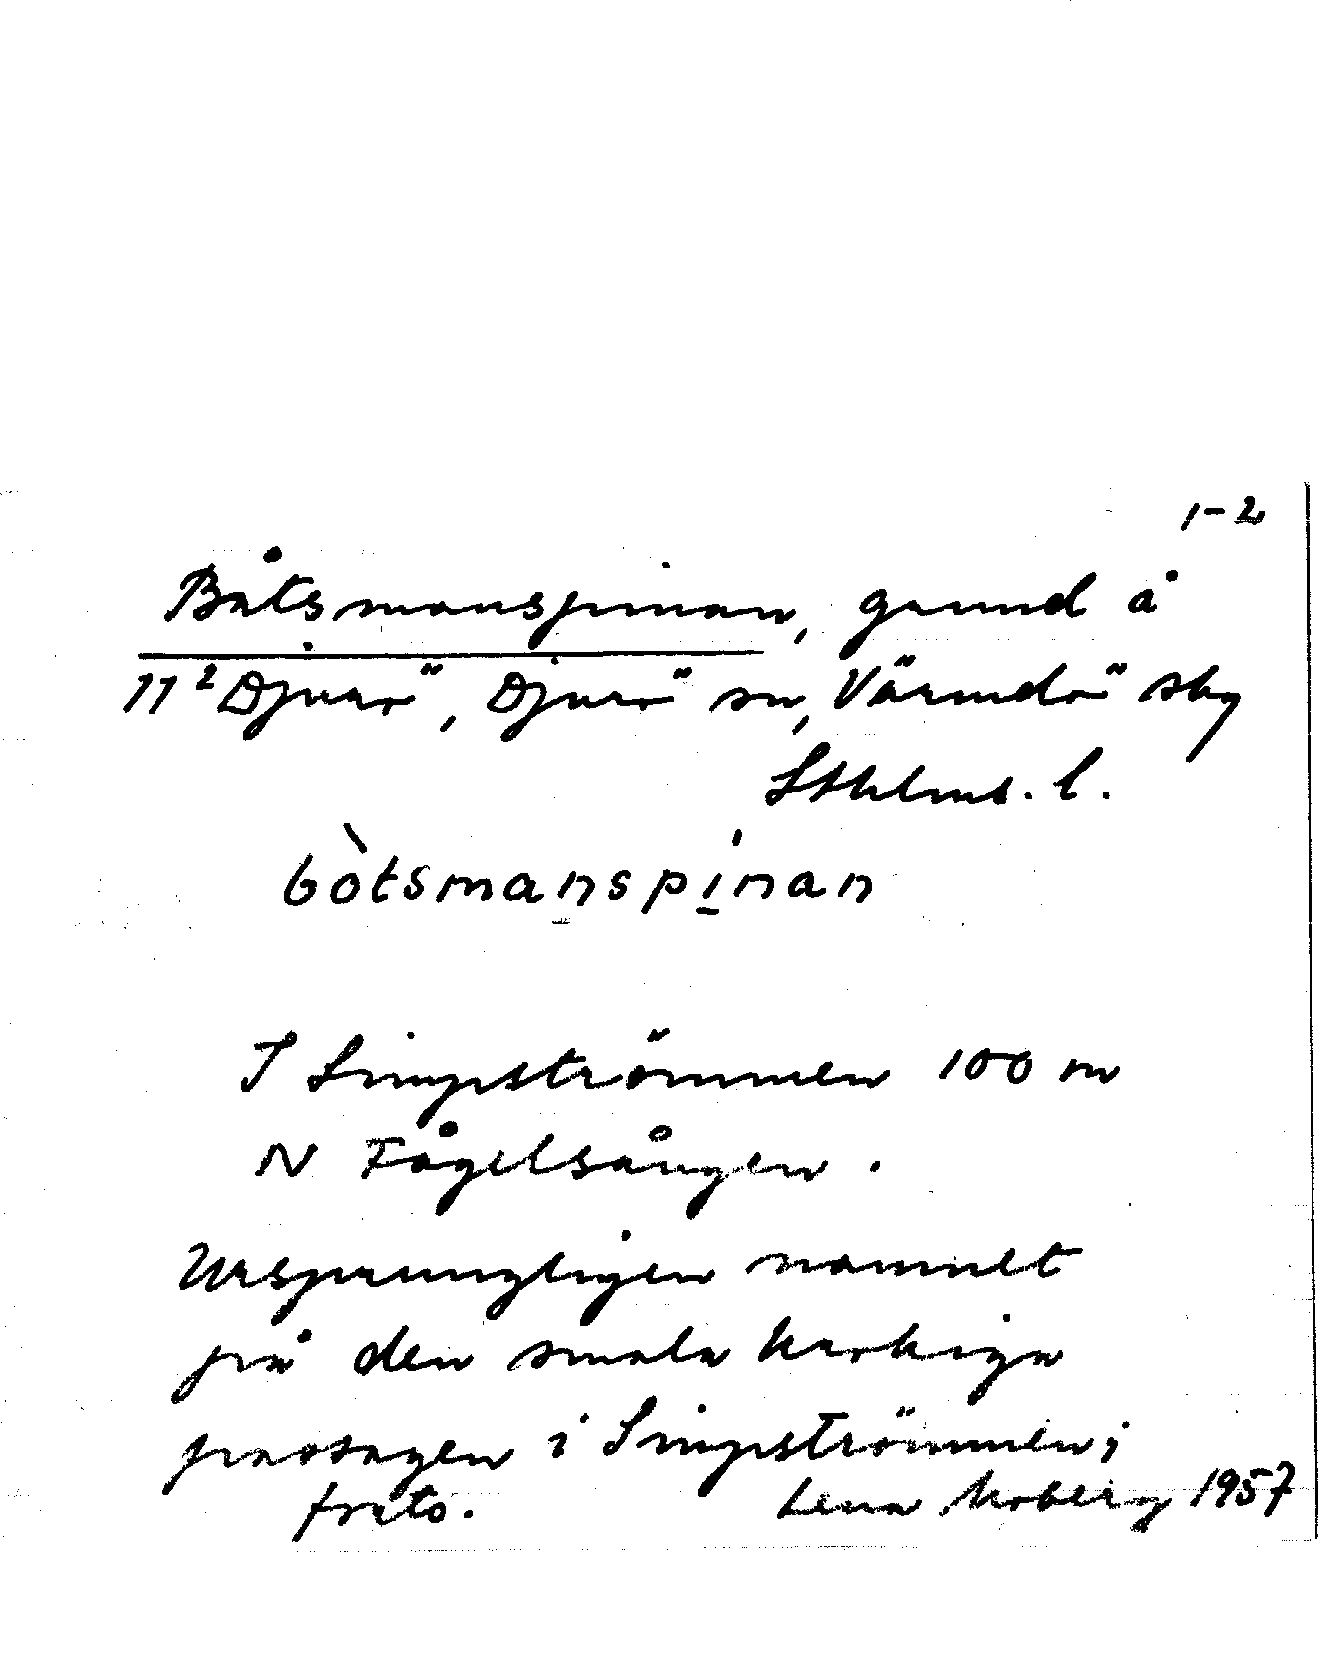 1-2
Båtsmanspinan, grund å
11² Djurö, Djurö sn, Värmdö sky
Sthlms. l.
bòtsmanspinan
I Simpströmmen 100 m
N Fågelsången.
Ursprungligen namnet
på den smala krokiga
passagen i Simpströmmen;
frits.
Lena Moberg 1957